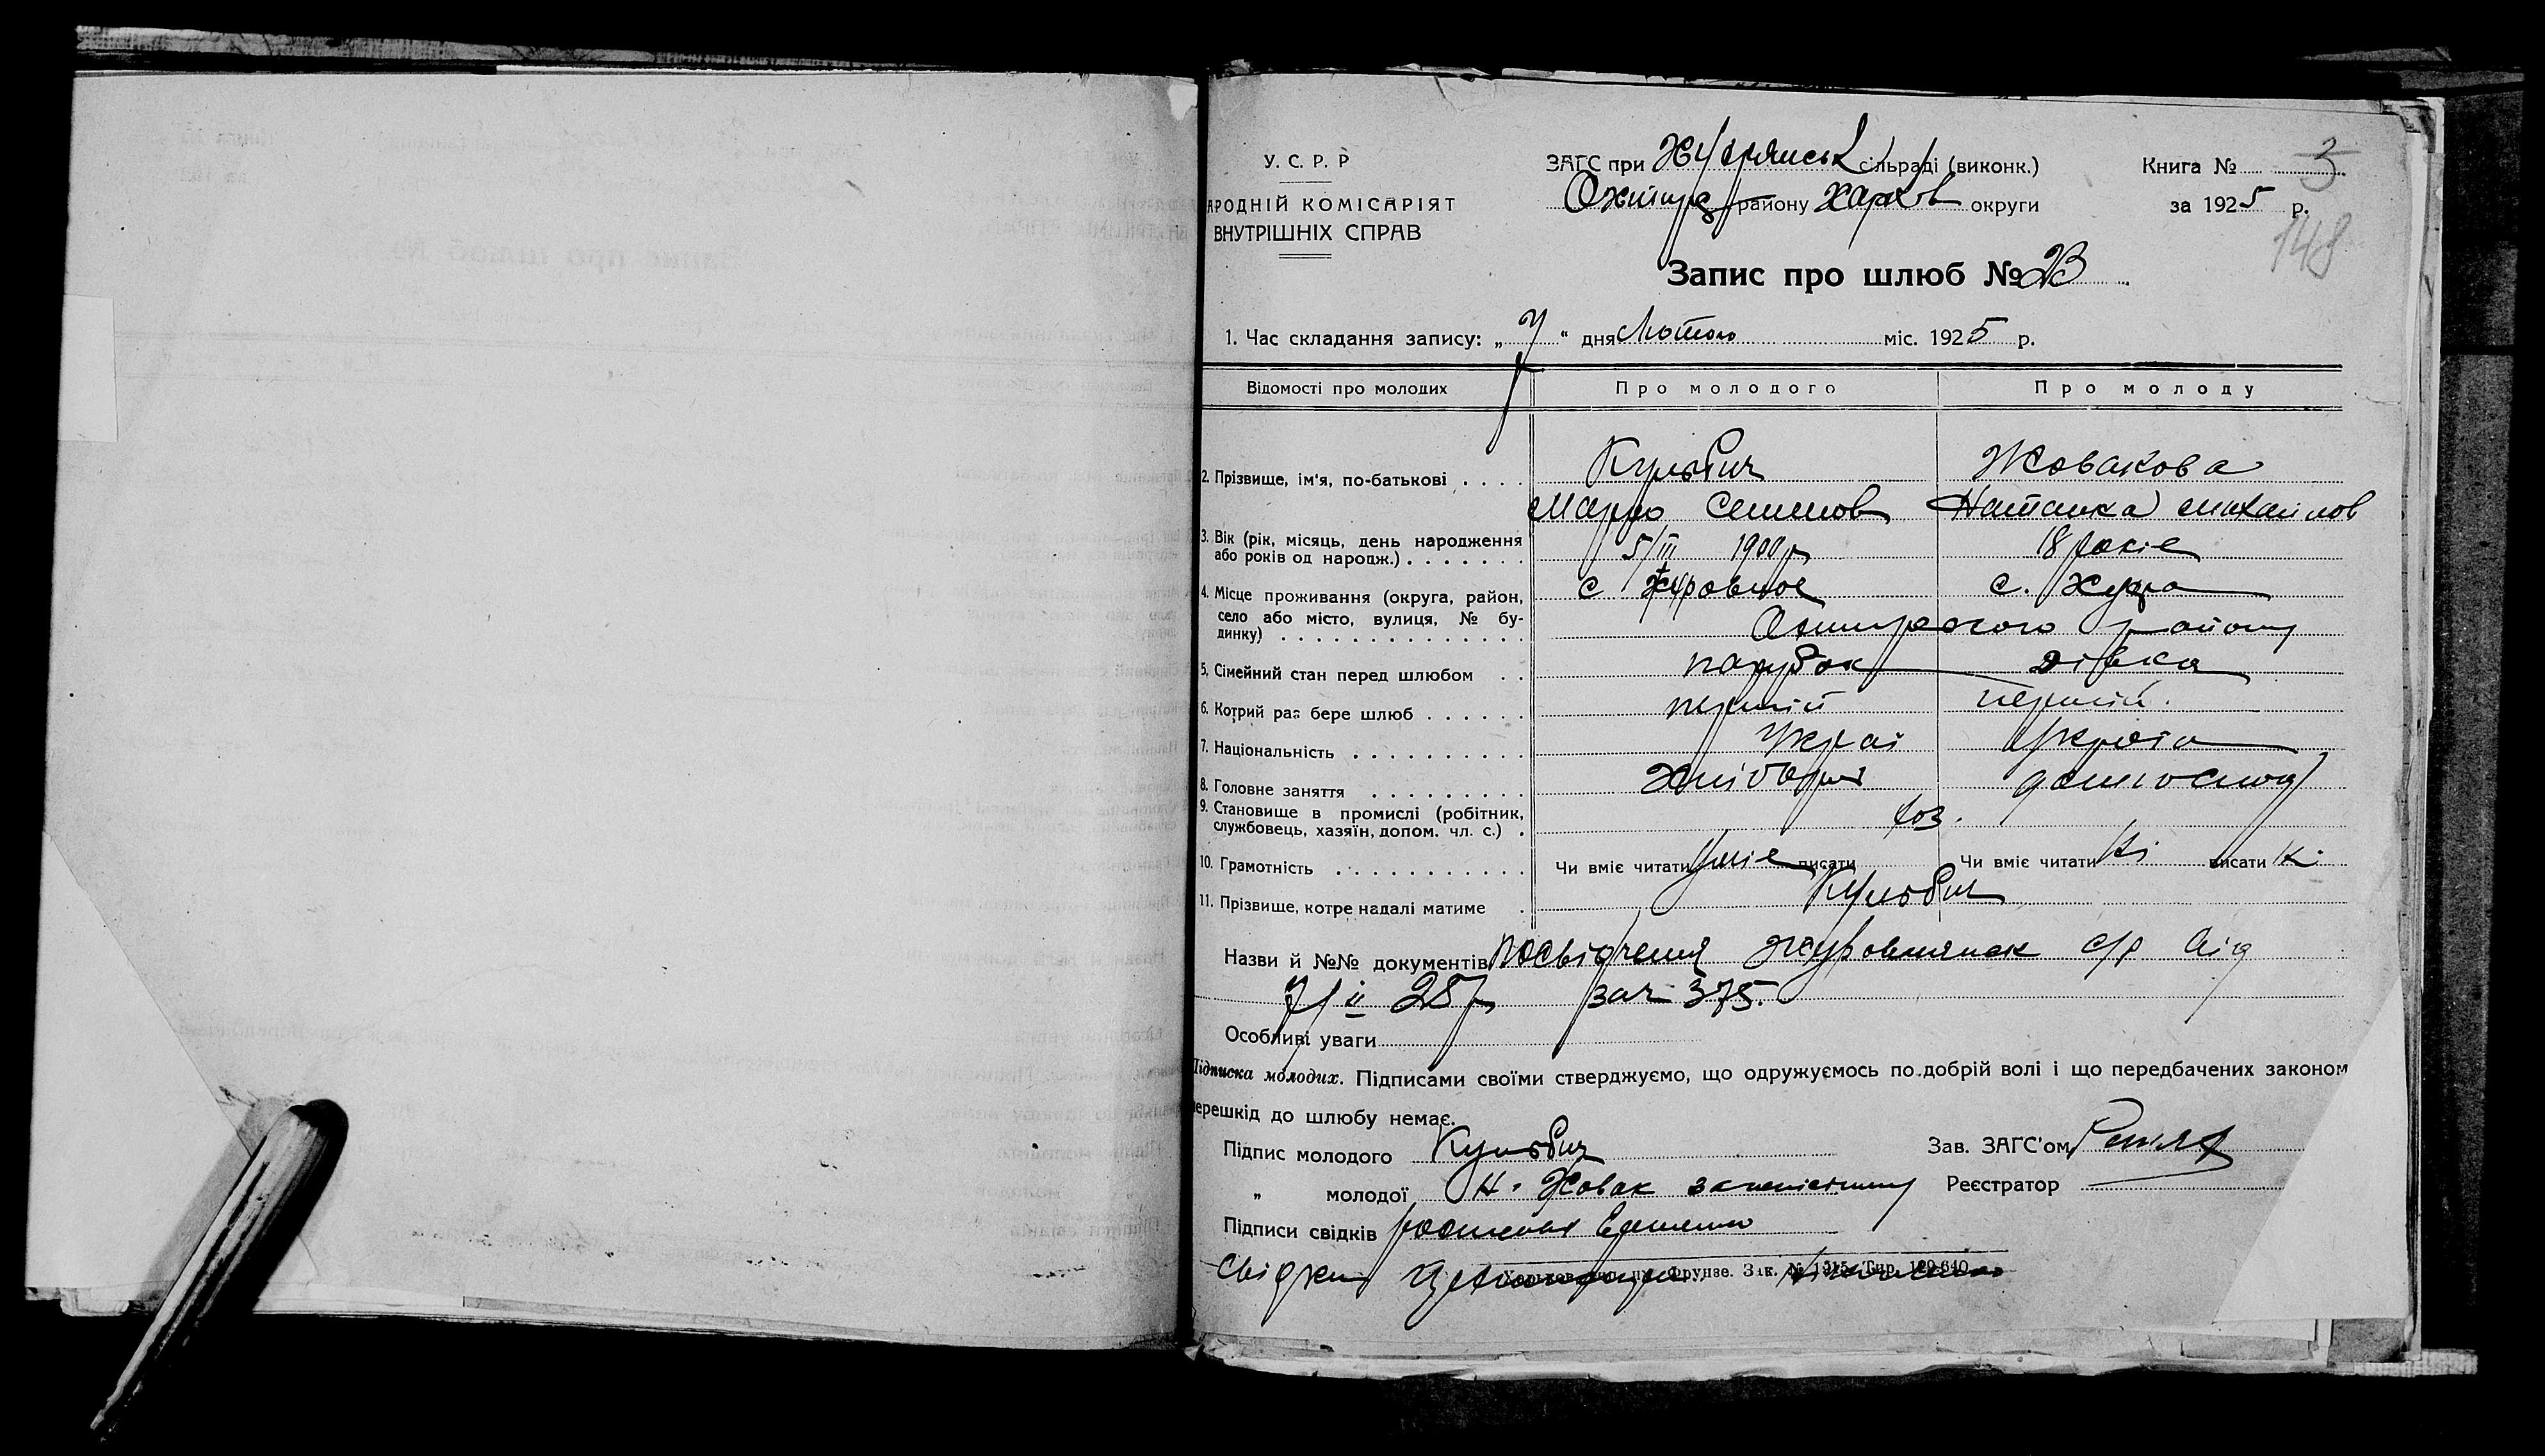 У. С. Р. Р
АРОДНІЙ КОМІСАРІЯТ
ВНУТРІШНІХ СПРАВ
ЗАГС при сільраді (виконк.)
району Харков округи
Книга № 3
за 1925 р.
148
Запис про шлюб № 23
1. Час складання запису: „7“ дня Лютого міс. 1925 р.
Відомості про молодих Про молодого Про молоду
2. Прізвище, ім'я, по-батькові . . . . Кульбич Жовакова
Марко Семенов Наталка Михайлов
3. Вік (рік, місяць, день народження або років од народж.) . . . . . . . 5/III 1900 р. 18 років
4. Місце проживання (округа, район, село або місто, вулиця, № будинку) . . . . . . . . . . . . . . с с.
району
5. Сімейний стан перед шлюбом . . парубок дівка
6. Котрий раз бере шлюб . . . . . . перший перший.
7. Національність . . . . . . . . . . Украї Україн
8. Головне заняття . . . . . . . . . Хлібороб домгоспод
9. Становище в промислі (робітник, службовець, хазяїн, допом. чл. с.) . хоз.
10. Грамотність . . . . . . . . . . . Чи вміє читати уміє писати Чи вміє читати Ні писати Ні
11. Прізвище, котре надалі матиме . Кульбич
Назви й №№ документів Посвідчення с/р від
7/II 25 р за № 375.
Особливі уваги
Підписка молодих. Підписами своїми стверджуємо, що одружуємось по добрій волі і що передбачених законом
ерешкід до шлюбу немає.
Підпис молодого Кульбич Зав. ЗАГС'ом
„ молодої Н. Жовак Реєстратор
Підписи свідків
Свідки
Фрунзе. Зак. № 1515. Тир.